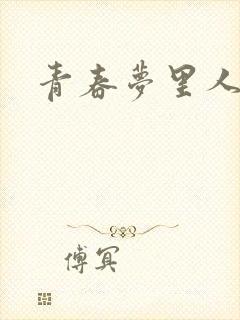 青春夢里人
傅冥